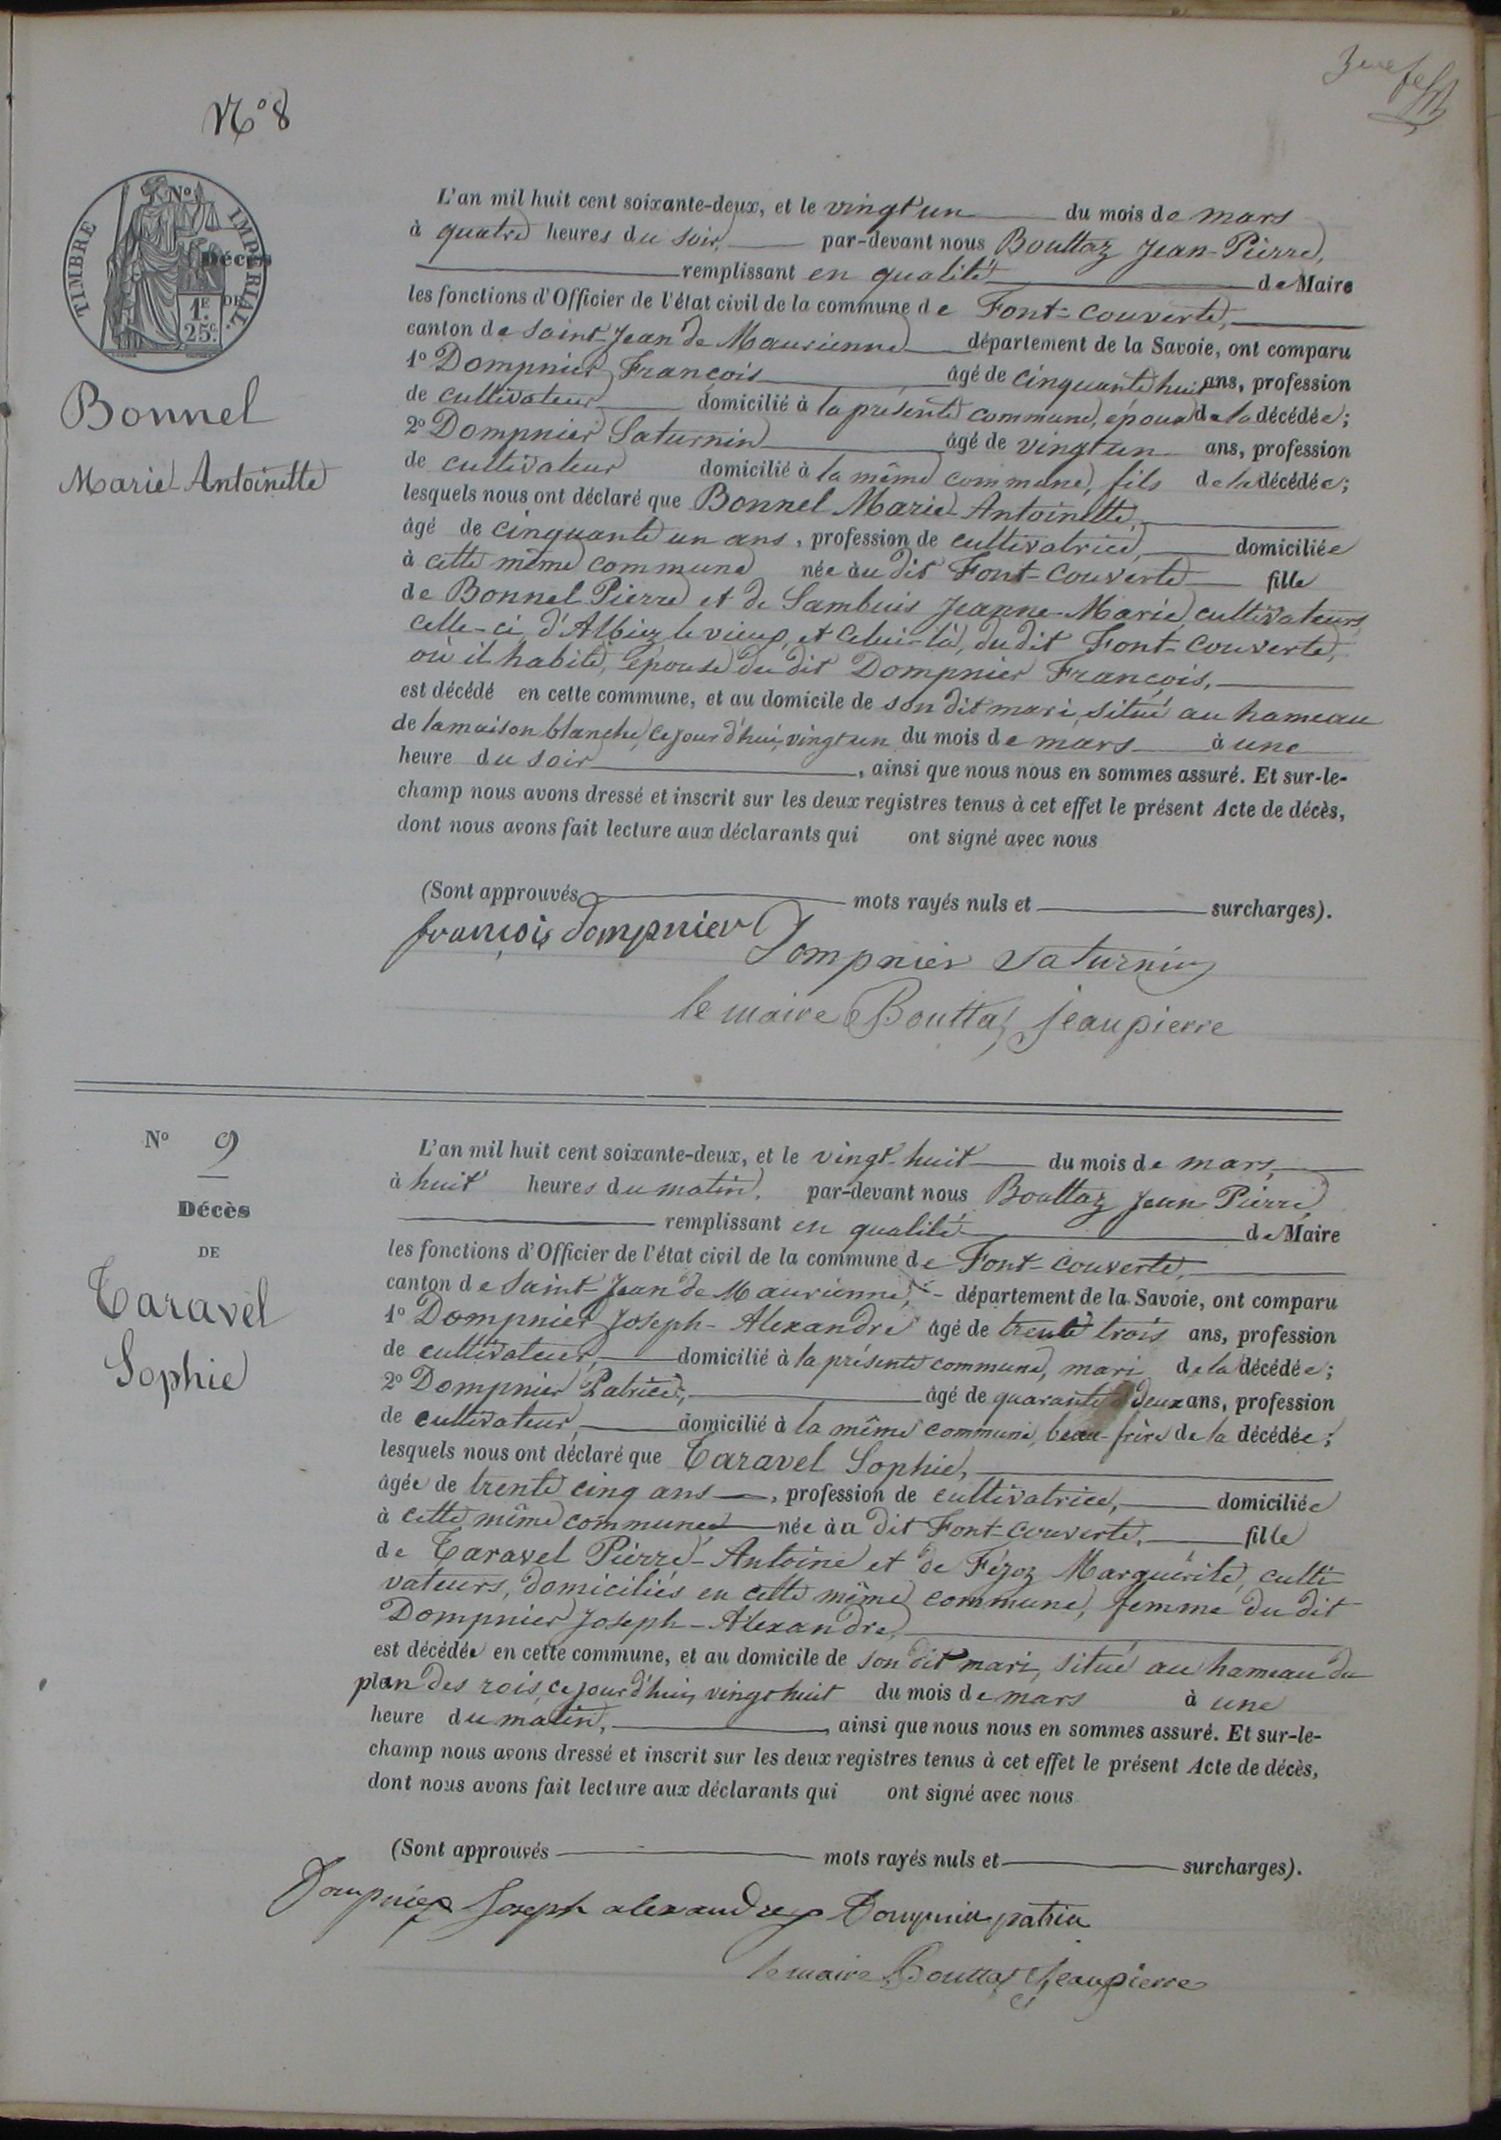 3me
N° 8
TIMBRE IMPÉRIAL
N°
Décès
DE
1F.
25c.
Bonnel
Marie Antoinette
L'an mil huit cent soixante-deux, et le vingt un du mois de mars
à quatre heures du soir, par-devant nous Bouttaz Jean-Pierre,
remplissant en qualité de Maire
les fonctions d'Officier de l'état civil de la commune de Font-couverte,
canton de Saint-Jean de Maurienne département de la Savoie, ont comparu
1° Dompnier François âgé de cinquante huit ans, profession
de cultivateur domicilié à la présente commune, époux de la décédée;
2° Dompnier Saturnin âgé de vingt un ans, profession
de cultivateur domicilié à la même commune, fils de la décédée;
lesquels nous ont déclaré que Bonnel Marie-Antoinette,
âgé de cinquante un ans, profession de cultivatrice, domiciliée
à cette même commune née au dit Font-couverte fille
de Bonnel Pierre et de Sambuis Jeanne-Marie, cultivateurs,
celle-ci d'Albiez le vieux, et celui-là, du dit Font-couverte,
où il habite, épouse du dit Dompnier François,
est décédé en cette commune, et au domicile de son dit mari, situé au hameau
de la maison blanche, ce jourd'hui, vingt un du mois de mars à une
heure du soir, ainsi que nous nous en sommes assuré. Et sur-le-
champ nous avons dressé et inscrit sur les deux registres tenus à cet effet le présent Acte de décès,
dont nous avons fait lecture aux déclarants qui ont signé avec nous
(Sont approuvés mots rayés nuls et surcharges).
françois dompnier
Dompnier Saturnin
le maire Bouttaz jeanpierre
N° 9
Décès
DE
Taravel
Sophie
L'an mil huit cent soixante-deux, et le vingt-huit du mois de mars,
à huit heures du matin, par-devant nous Bouttaz Jean-Pierre
remplissant en qualité de Maire
les fonctions d'Officier de l'état civil de la commune de Font-couverte,
canton de Saint-Jean de Maurienne, département de la Savoie, ont comparu
1° Dompnier Joseph-Alexandre âgé de trente trois ans, profession
de cultivateur, domicilié à la présente commune, mari de la décédée;
2° Dompnier Patrice, âgé de quarante deux ans, profession
de cultivateur, domicilié à la même commune, beau-frère de la décédée;
lesquels nous ont déclaré que Taravel Sophie,
âgée de trente cinq ans, profession de cultivatrice, domiciliée
à cette même commune née au dit Font-couverte, fille
de Taravel Pierre-Antoine et de Féjoz Marguérite, culti-
vateurs, domiciliés en cette même commune, femme du dit
Dompnier Joseph-Alexandre,
est décédée en cette commune, et au domicile de son dit mari, situé au hameau du
plan des rois, ce jourd'hui, vingt huit du mois de mars à une
heure du matin, ainsi que nous nous en sommes assuré. Et sur-le-
champ nous avons dressé et inscrit sur les deux registres tenus à cet effet le présent Acte de décès,
dont nous avons fait lecture aux déclarants qui ont signé avec nous
(Sont approuvés mots rayés nuls et surcharges).
Dompnier Joseph alexandre Dompnier patrice
le maire Bouttaz Jeanpierre